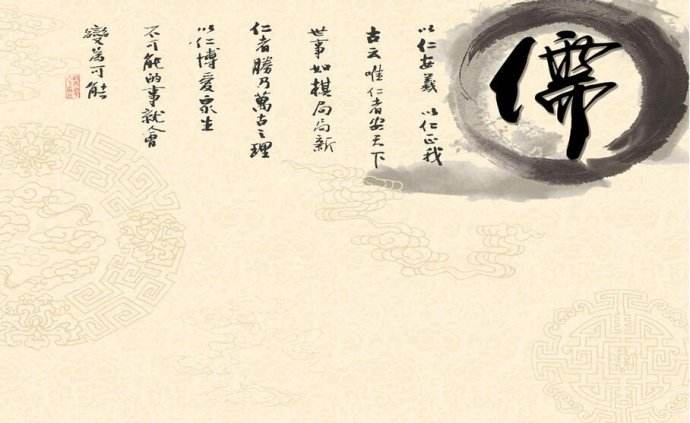 儒
以仁安義 以仁正我
古云唯仁者安天下
世事如棋局局新
仁者勝乃萬古之理
以仁博愛眾生
不可能的事就会
變為可能